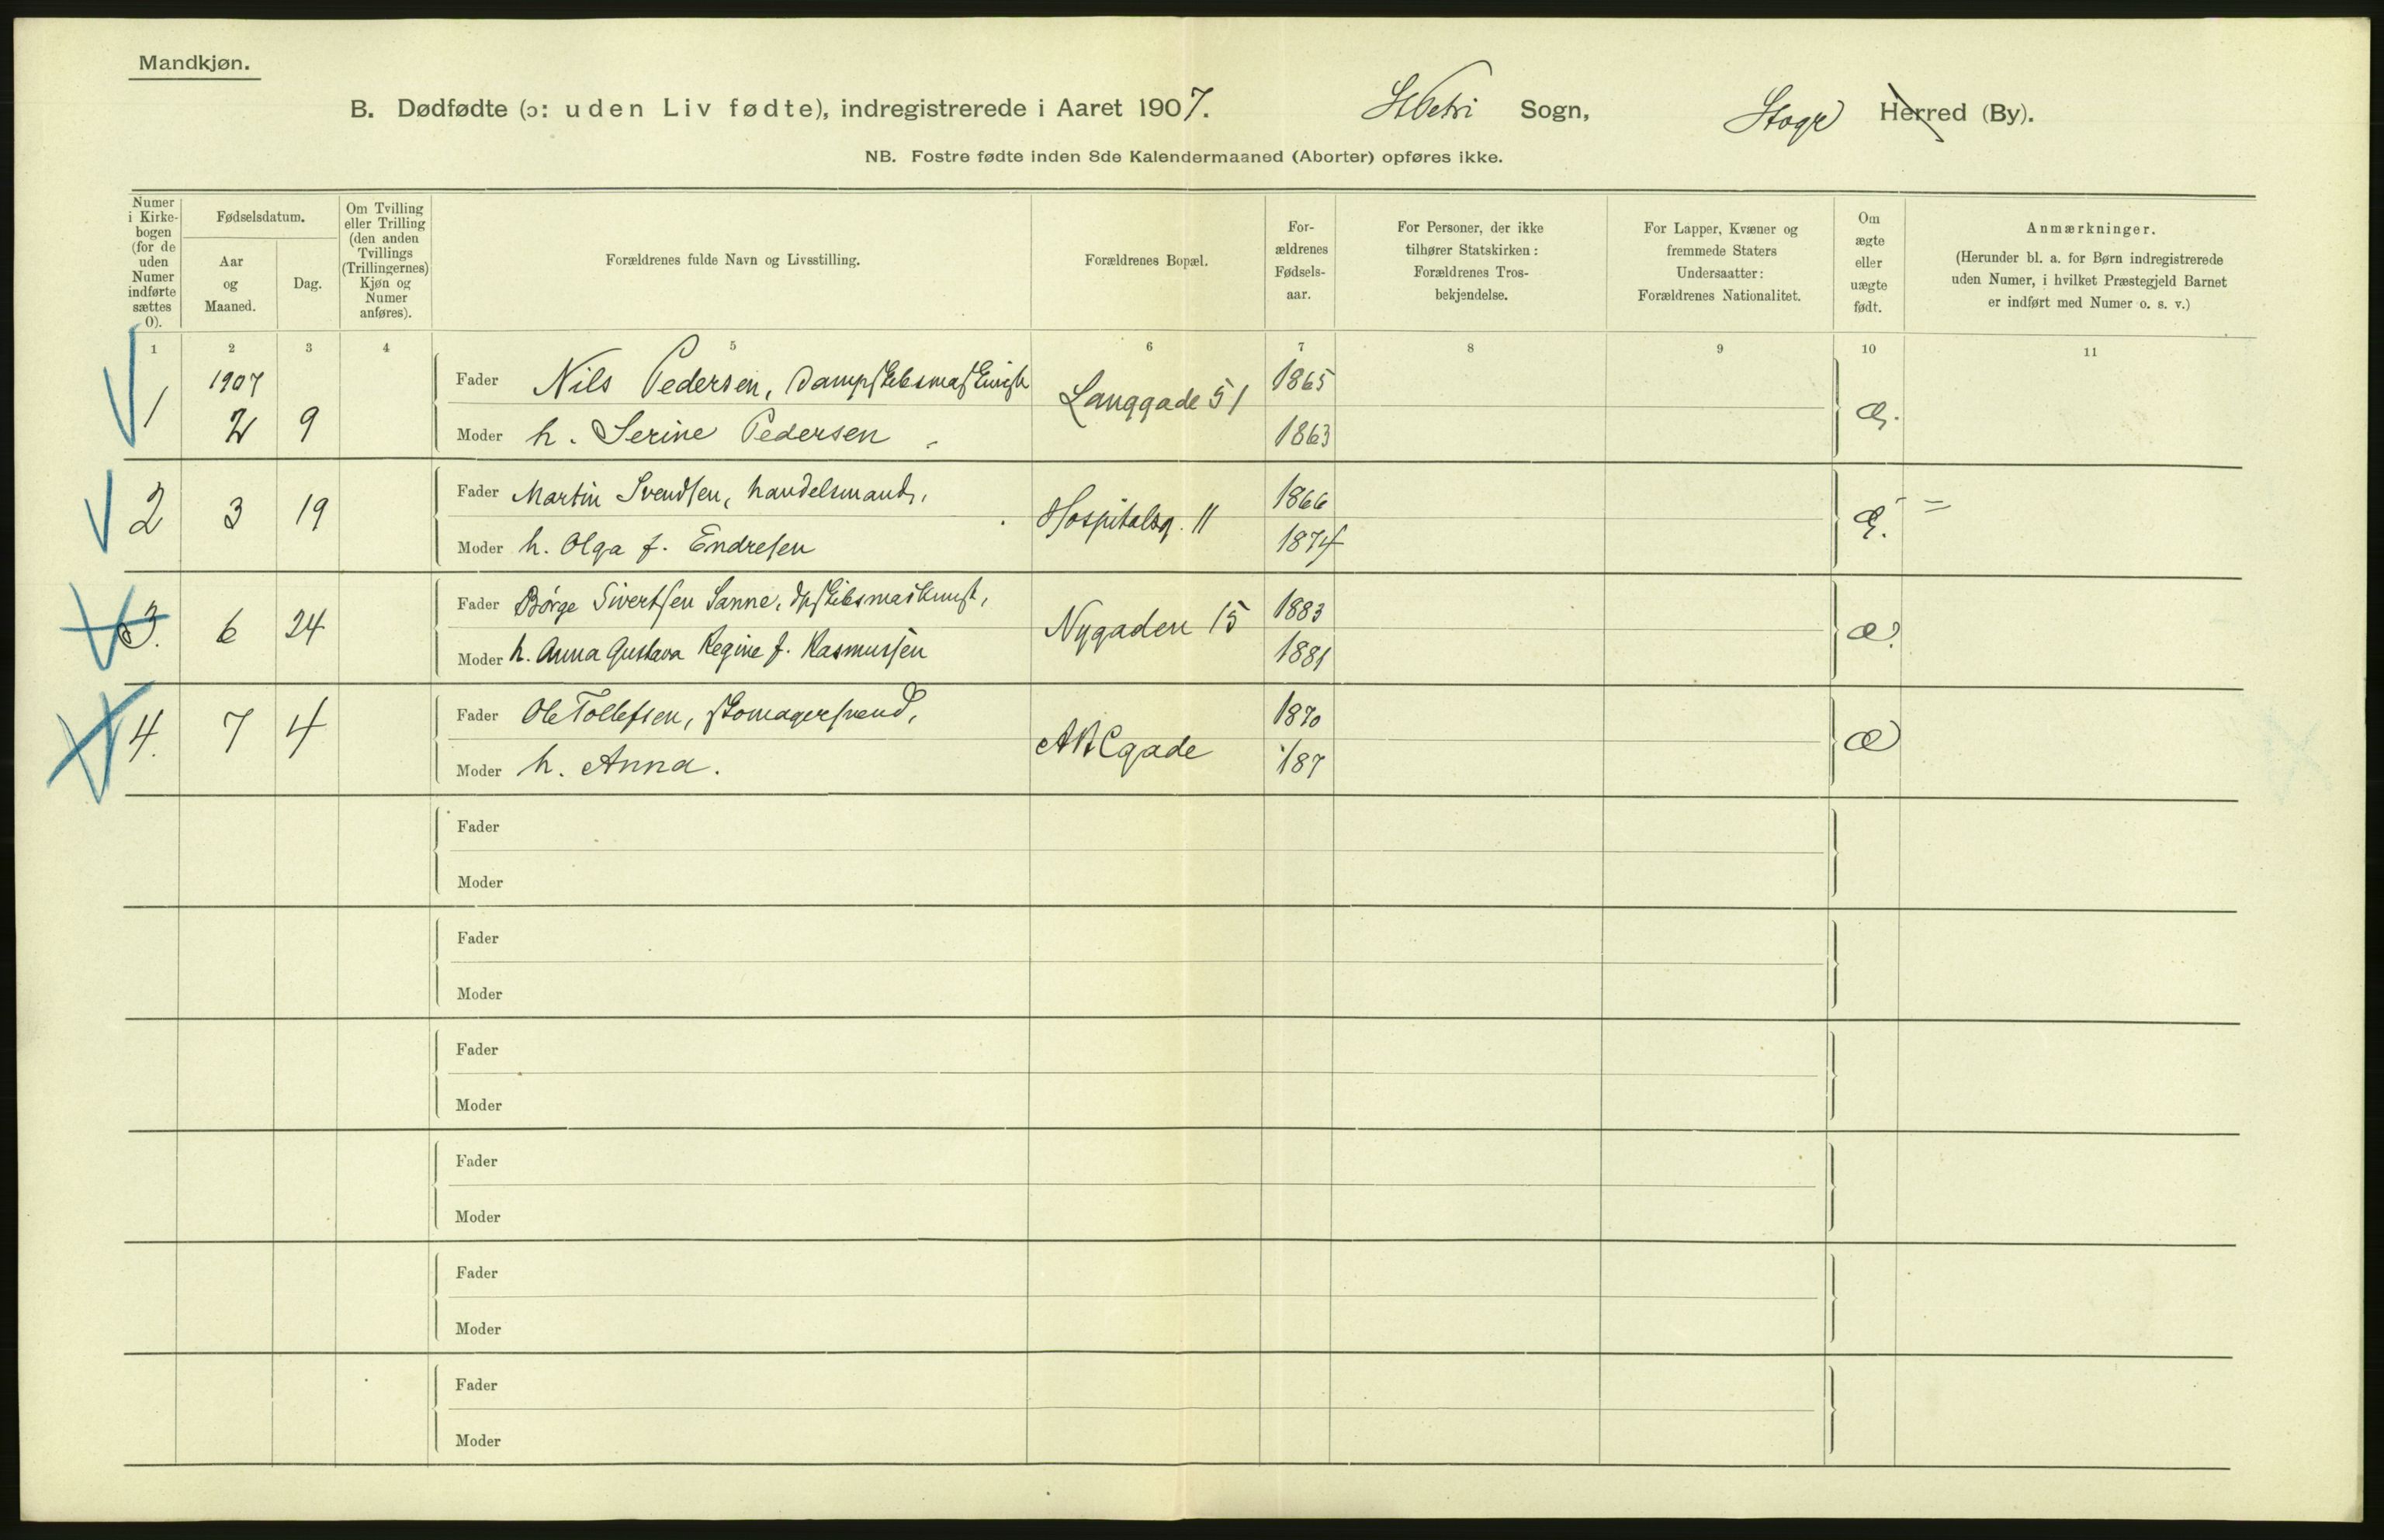 Mandkjøn.
B. Dødfødte (ɔ: uden Liv fødte), indregistrerede i Aaret 1907. St Petri Sogn, Herred (By).
NB. Fostre fødte inden 8de Kalendermaaned (Aborter) opføres ikke.
Numer i Kirkebogen (for de uden Numer indførte sættes 0).
Fødselsdatum.
Aar og Maaned.
Dag.
Om Tvilling eller Trilling (den anden Tvillings (Trillingernes) Kjøn og Numer anføres).
Forældrenes fulde Navn og Livsstilling.
Forældrenes Bopæl.
Forældrenes Fødselsaar.
For Personer, der ikke tilhører Statskirken: Forældrenes Trosbekjendelse.
For Lapper, Kvæner og fremmede Staters Undersaatter: Forældrenes Nationalitet.
Om ægte eller uægte født.
Anmærkninger.
(Herunder bl. a. for Børn indregistrerede uden Numer, i hvilket Præstegjeld Barnet er indført med Numer o. s. v.)
1 2 3 4 5 6 7 8 9 10 11
1907
1 2 9 Fader Nils Pedersen, Dampskibsmaskinist Langgade 51 1865 Æ.
Moder h. Serine Pedersen 1863
2 3 19 Fader Martin Svendsen, handelsmand, Hospitalsg. 11 1866 Æ.
Moder h. Olga f. Endresen 1874
3. 6 24 Fader Børge Sivertsen Sanne, dpskibsmaskinist, Nygaden 15 1883 æ.
Moder h. Anna Gustava Regine f. Rasmussen 1881
4. 7 4 Fader Ole Tollefsen, skomagersvend, ABCgade 1870 æ
Moder h. Anna. 187
Fader
Moder
Fader
Moder
Fader
Moder
Fader
Moder
Fader
Moder
Fader
Moder